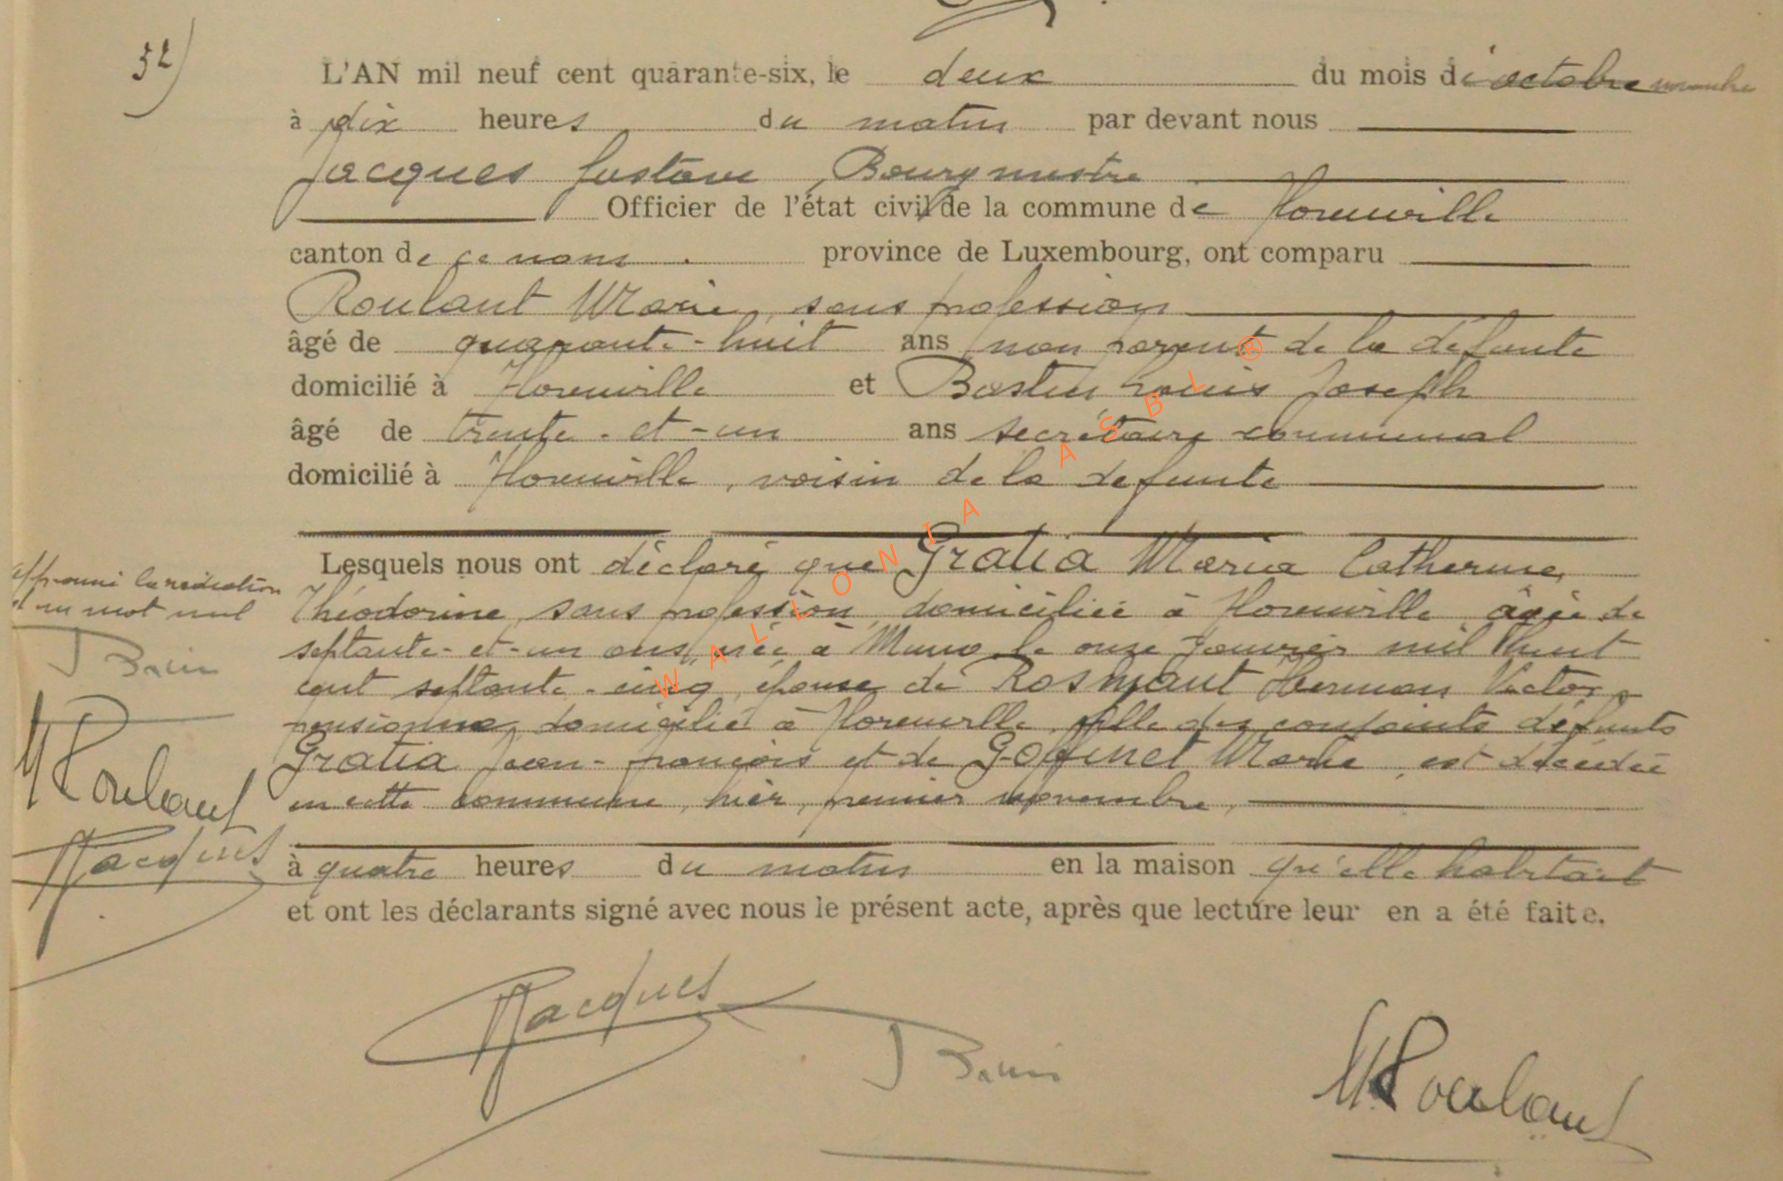 32)
L'AN mil neuf cent quarante-six, le deux du mois de octobre novembre
à dix heures du matin par devant nous
Jacques Gustave, Bourgmestre
Officier de l'état civil de la commune de Florenville
canton de ce nom. province de Luxembourg, ont comparu
Roulant Marie, sans profession
âgé de quarante-huit ans non parent de la défunte
domicilié à Florenville et Bastin Louis Joseph
âgé de trente-et-un ans secrétaire communal
domicilié à Florenville, voisin de la défunte
Lesquels nous ont déclaré que Gratia Maria Catherine
Théodorine, sans profession, domiciliée à Florenville, âgée de
septante-et-un ans, née à Muno le onze janvier mil huit
cent septante-cinq, épouse de Rosmant Herman Victor,
pensionné, domicilié à Florenville, fille des conjoints défunts
Gratia Jean-françois et de Goffinet Marie, est décédée
en cette commune, hier, premier novembre,
à quatre heures du matin en la maison qu'elle habitait
et ont les déclarants signé avec nous le présent acte, après que lecture leur en a été faite.
approuvé la radiation
d'un mot nul
M Roulant
Jacques
Jacques
M Roulant
WALLONIA ASBL ®